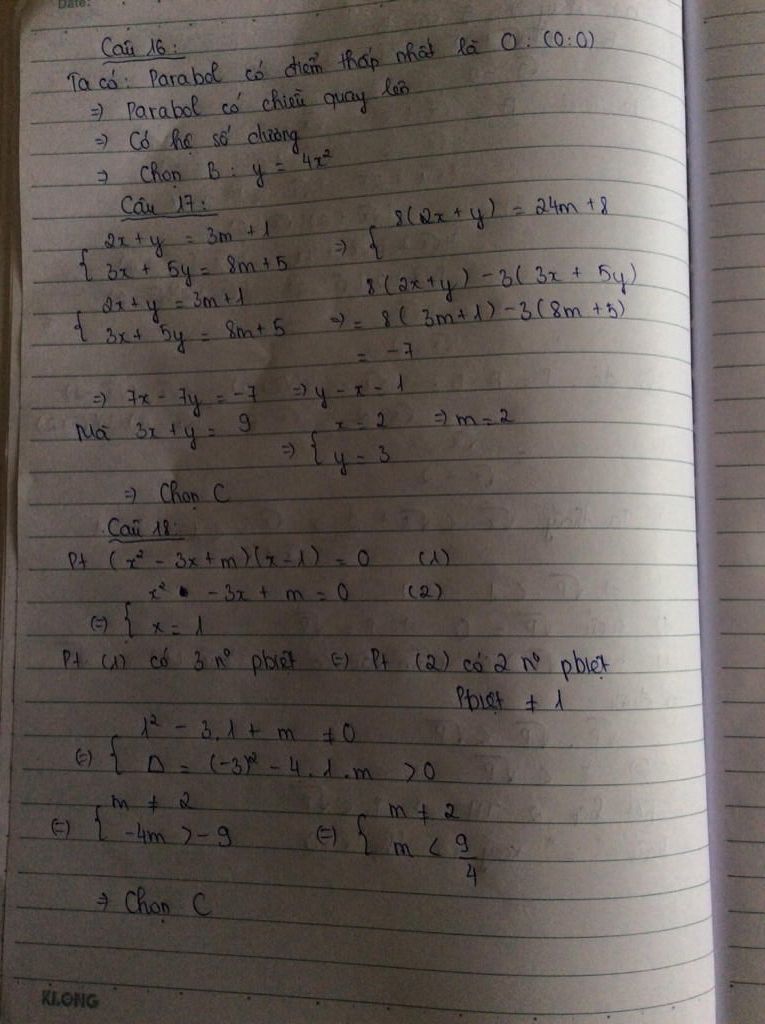 Date:
Câu 16:
Ta có: Parabol có điểm thấp nhất là O: (0:0)
⇒ Parabol có chiều quay lên
⇒ Có hệ số dương
⇒ Chọn B: y = 4x²
Câu 17:
{ 2x+y = 3m+1 ⇒ { 8(2x+y) = 24m+8
3x + 5y = 8m+5
{ 2x+y = 3m+1 8(2x+y) - 3(3x + 5y)
3x + 5y = 8m+5 ⇒ = 8(3m+1) - 3(8m+5)
= -7
⇒ 7x - 7y = -7 ⇒ y - x = 1
Mà 3x + y = 9 ⇒ { x = 2 ⇒ m = 2
y = 3
⇒ Chọn C
Câu 18:
Pt (x² - 3x + m)(x - 1) = 0 (1)
⇔ { x² - 3x + m = 0 (2)
x = 1
Pt (1) có 3 n⁰ pbiệt ⇔ Pt (2) có 2 n⁰ pbiệt
Pbiệt ≠ 1
⇔ { 1² - 3.1 + m ≠ 0
Δ = (-3)² - 4.1.m > 0
⇔ { m ≠ 2 ⇔ { m ≠ 2
-4m > -9 m < 9/4
⇒ Chọn C
KLONG